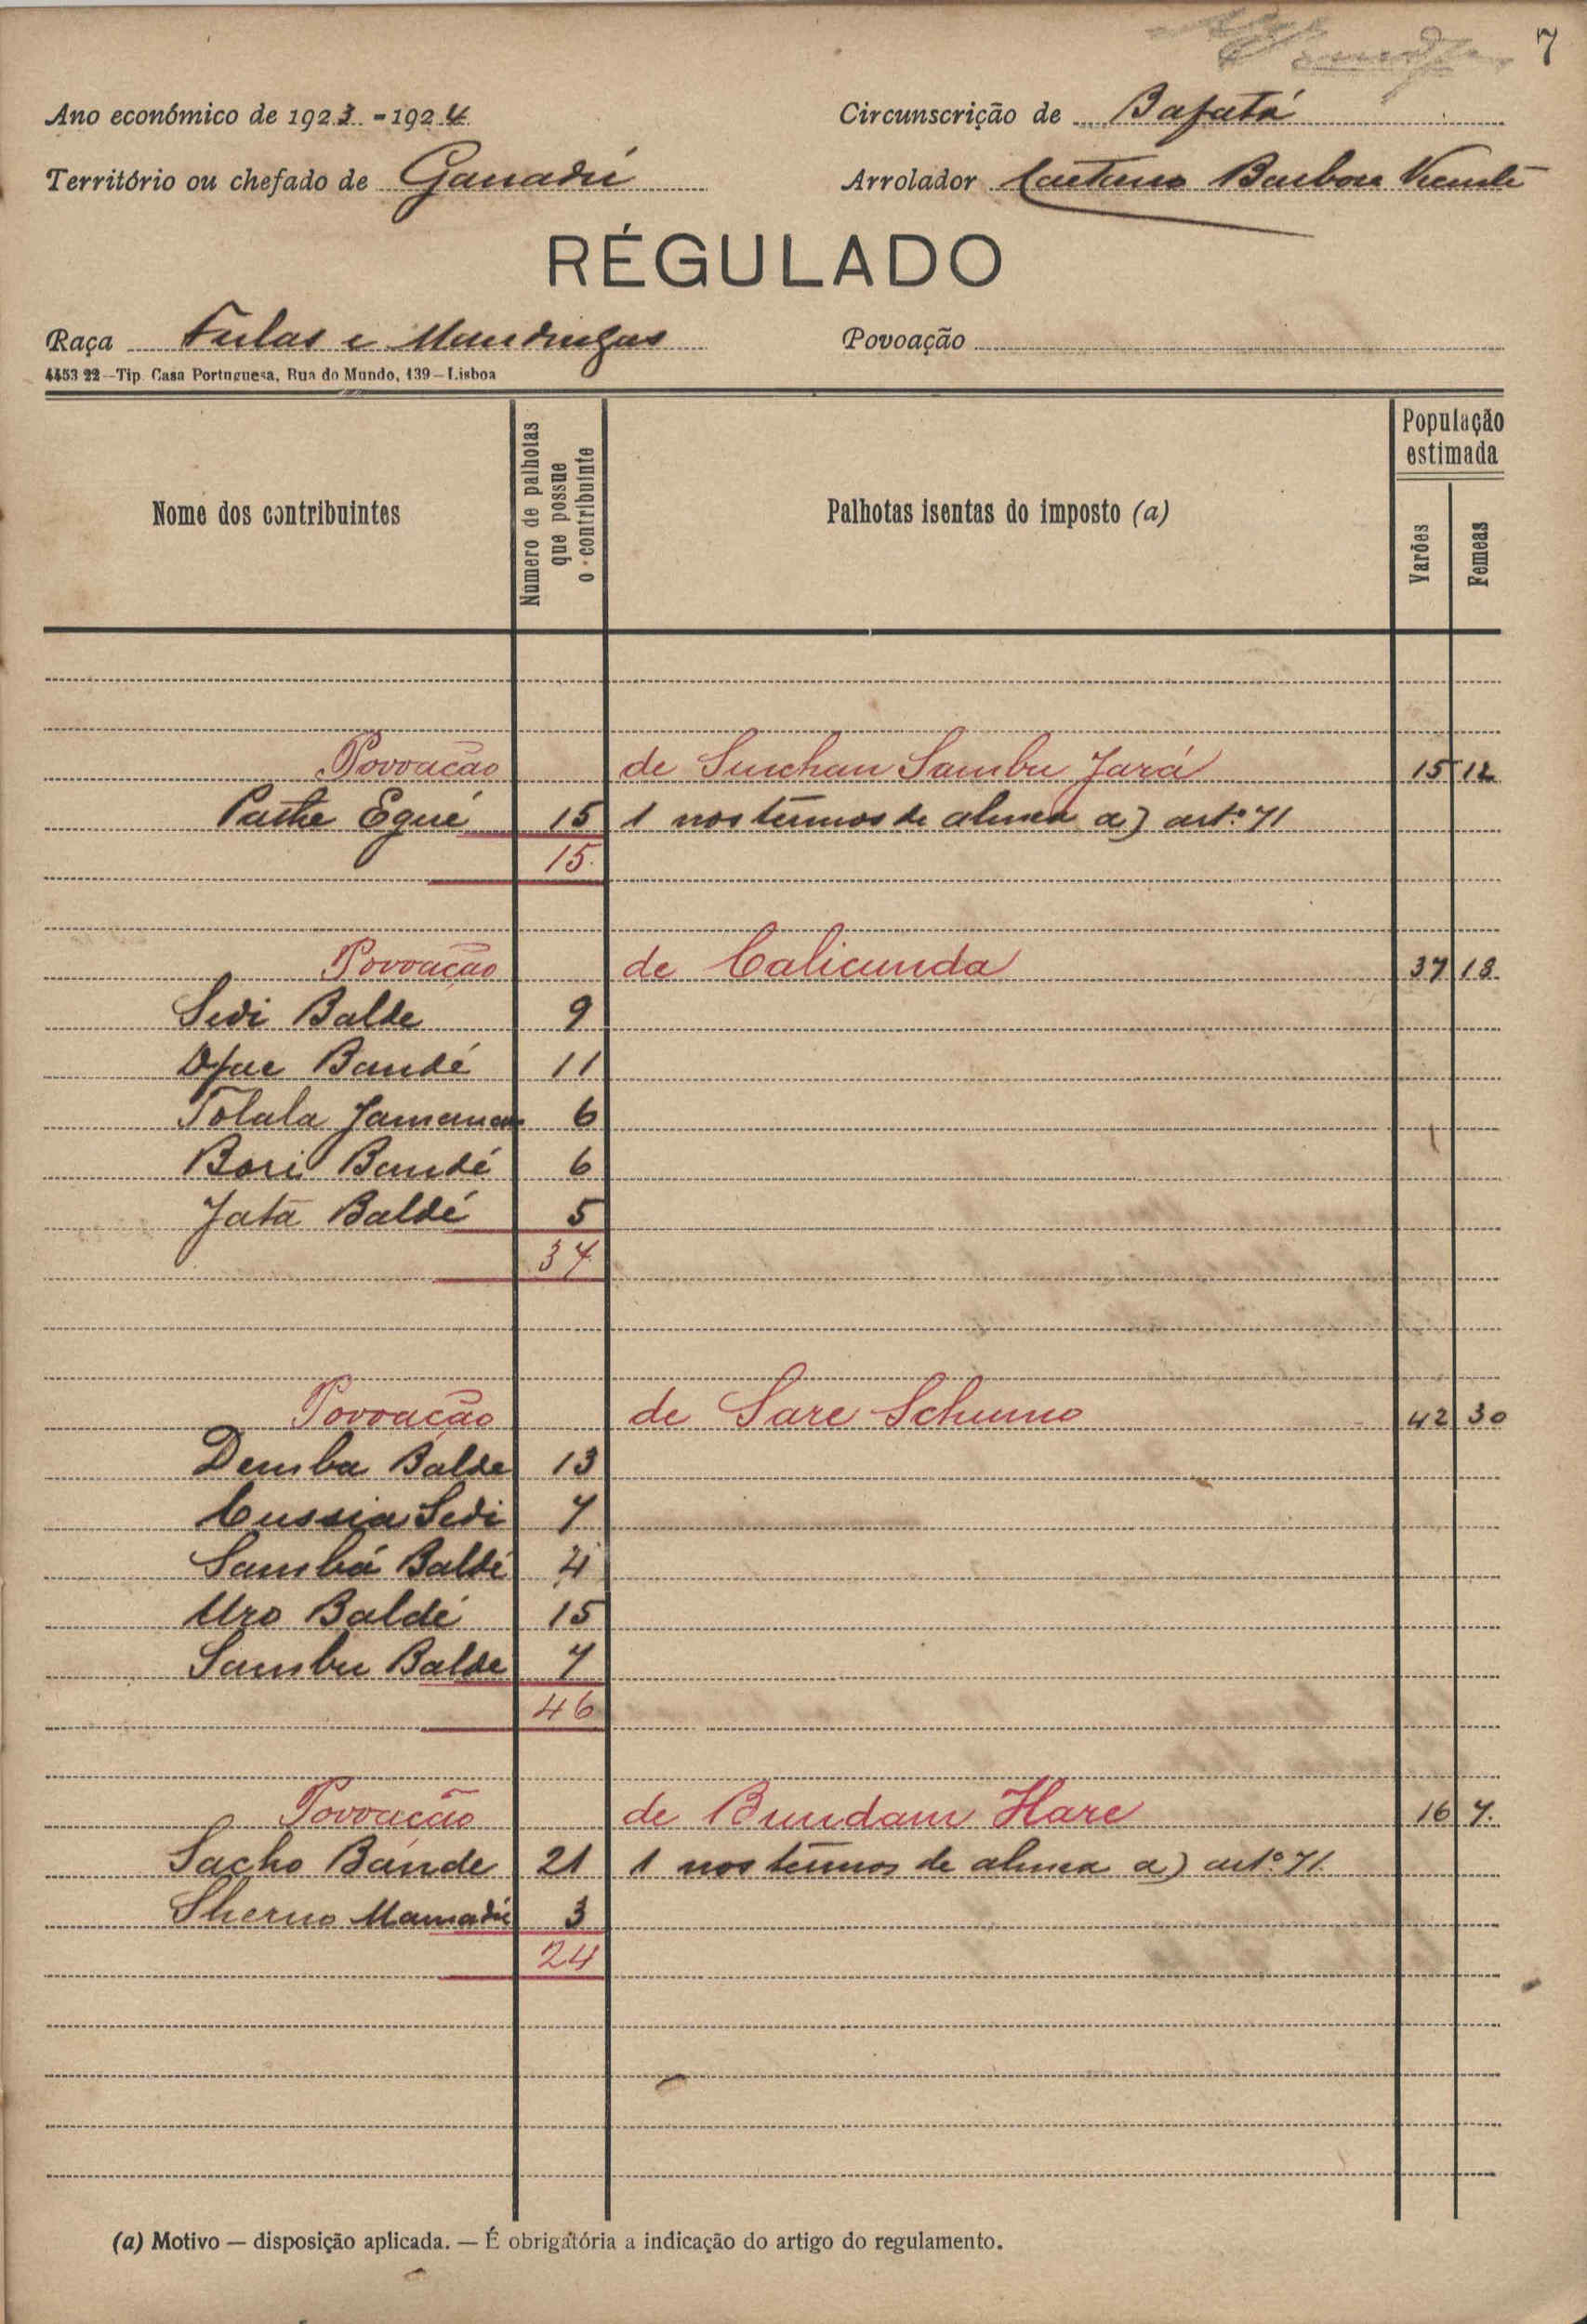 7
Ano económico de 1923-1924 Circunscrição de Bafatá
Território ou chefado de Ganadú Arrolador Caetano Barbosa Vicente
RÉGULADO
Raça Fulas e Mandingas Povoação
4453 22—Tip. Casa Portuguesa, Rua do Mundo, 139—Lisboa
Nome dos contribuintes Numero de palhotas que possue o contribuinte Palhotas isentas do imposto (a) População estimada Varões Femeas
Povoação de Sinchan Sambu Jará 15 12
Pathe Egué 15 1 nos termos de alinea a) artº 71
15
Povoação de Calicunda 37 18
Sedi Balde 9
Bandé 11
Tolala 6
Bori Bandé 6
Jatá Baldé 5
37
Povoação de Sare Schumo 42 30
Demba Balde 13
Cussia Sedi 7
Sambá Baldé 4
Uro Baldé 15
Sambu Balde 7
46
Povoação de Bundam Hare 16 7
Sacho Bande 21 1 nos termos de alinea a) artº 71
Sherno Mamadú 3
24
(a) Motivo — disposição aplicada. — É obrigatória a indicação do artigo do regulamento.